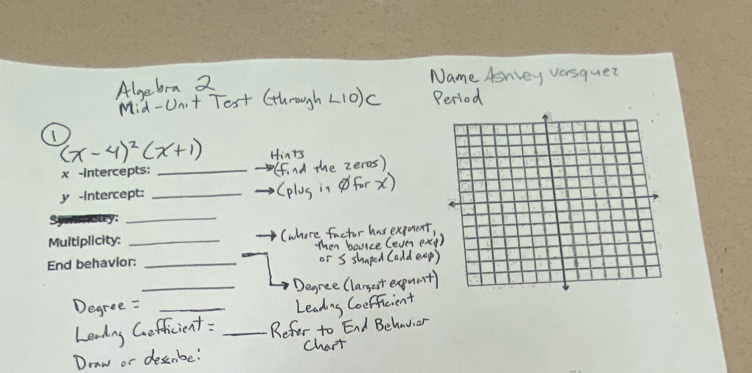 Algebra 2
Mid-Unit Test (through L10)C
Name Ashley Vasquez
Period
① (x-4)²(x+1)
Hints
x -Intercepts: ________ → (find the zeros)
y -Intercept: ________ → (plug in Ø for x)
________
Multiplicity: ________ → (where factor has exponent,
then bounce (even exp)
or S shaped (odd exp)
End behavior: ________
________ → Degree (largest exponent)
Leading Coefficient
Degree = ________
Leading Coefficient = ____ Refer to End Behavior
Chart
Draw or describe: